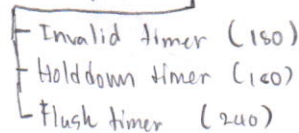 Invalid timer (180)
Holddown timer (180)
Flush timer (240)